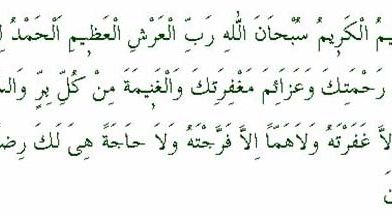 الْكَرِيمُ سُبْحَانَ اللّٰهِ رَبِّ الْعَرْشِ الْعَظِيمِ اَلْحَمْدُ
رَحْمَتِكَ وَعَزَائِمَ مَغْفِرَتِكَ وَالْغَنِيمَةَ مِنْ كُلِّ بِرٍّ
غَفَرْتَهُ وَلاَهَمًّا اِلاَّ فَرَّجْتَهُ وَلاَ حَاجَةً هِىَ لَكَ